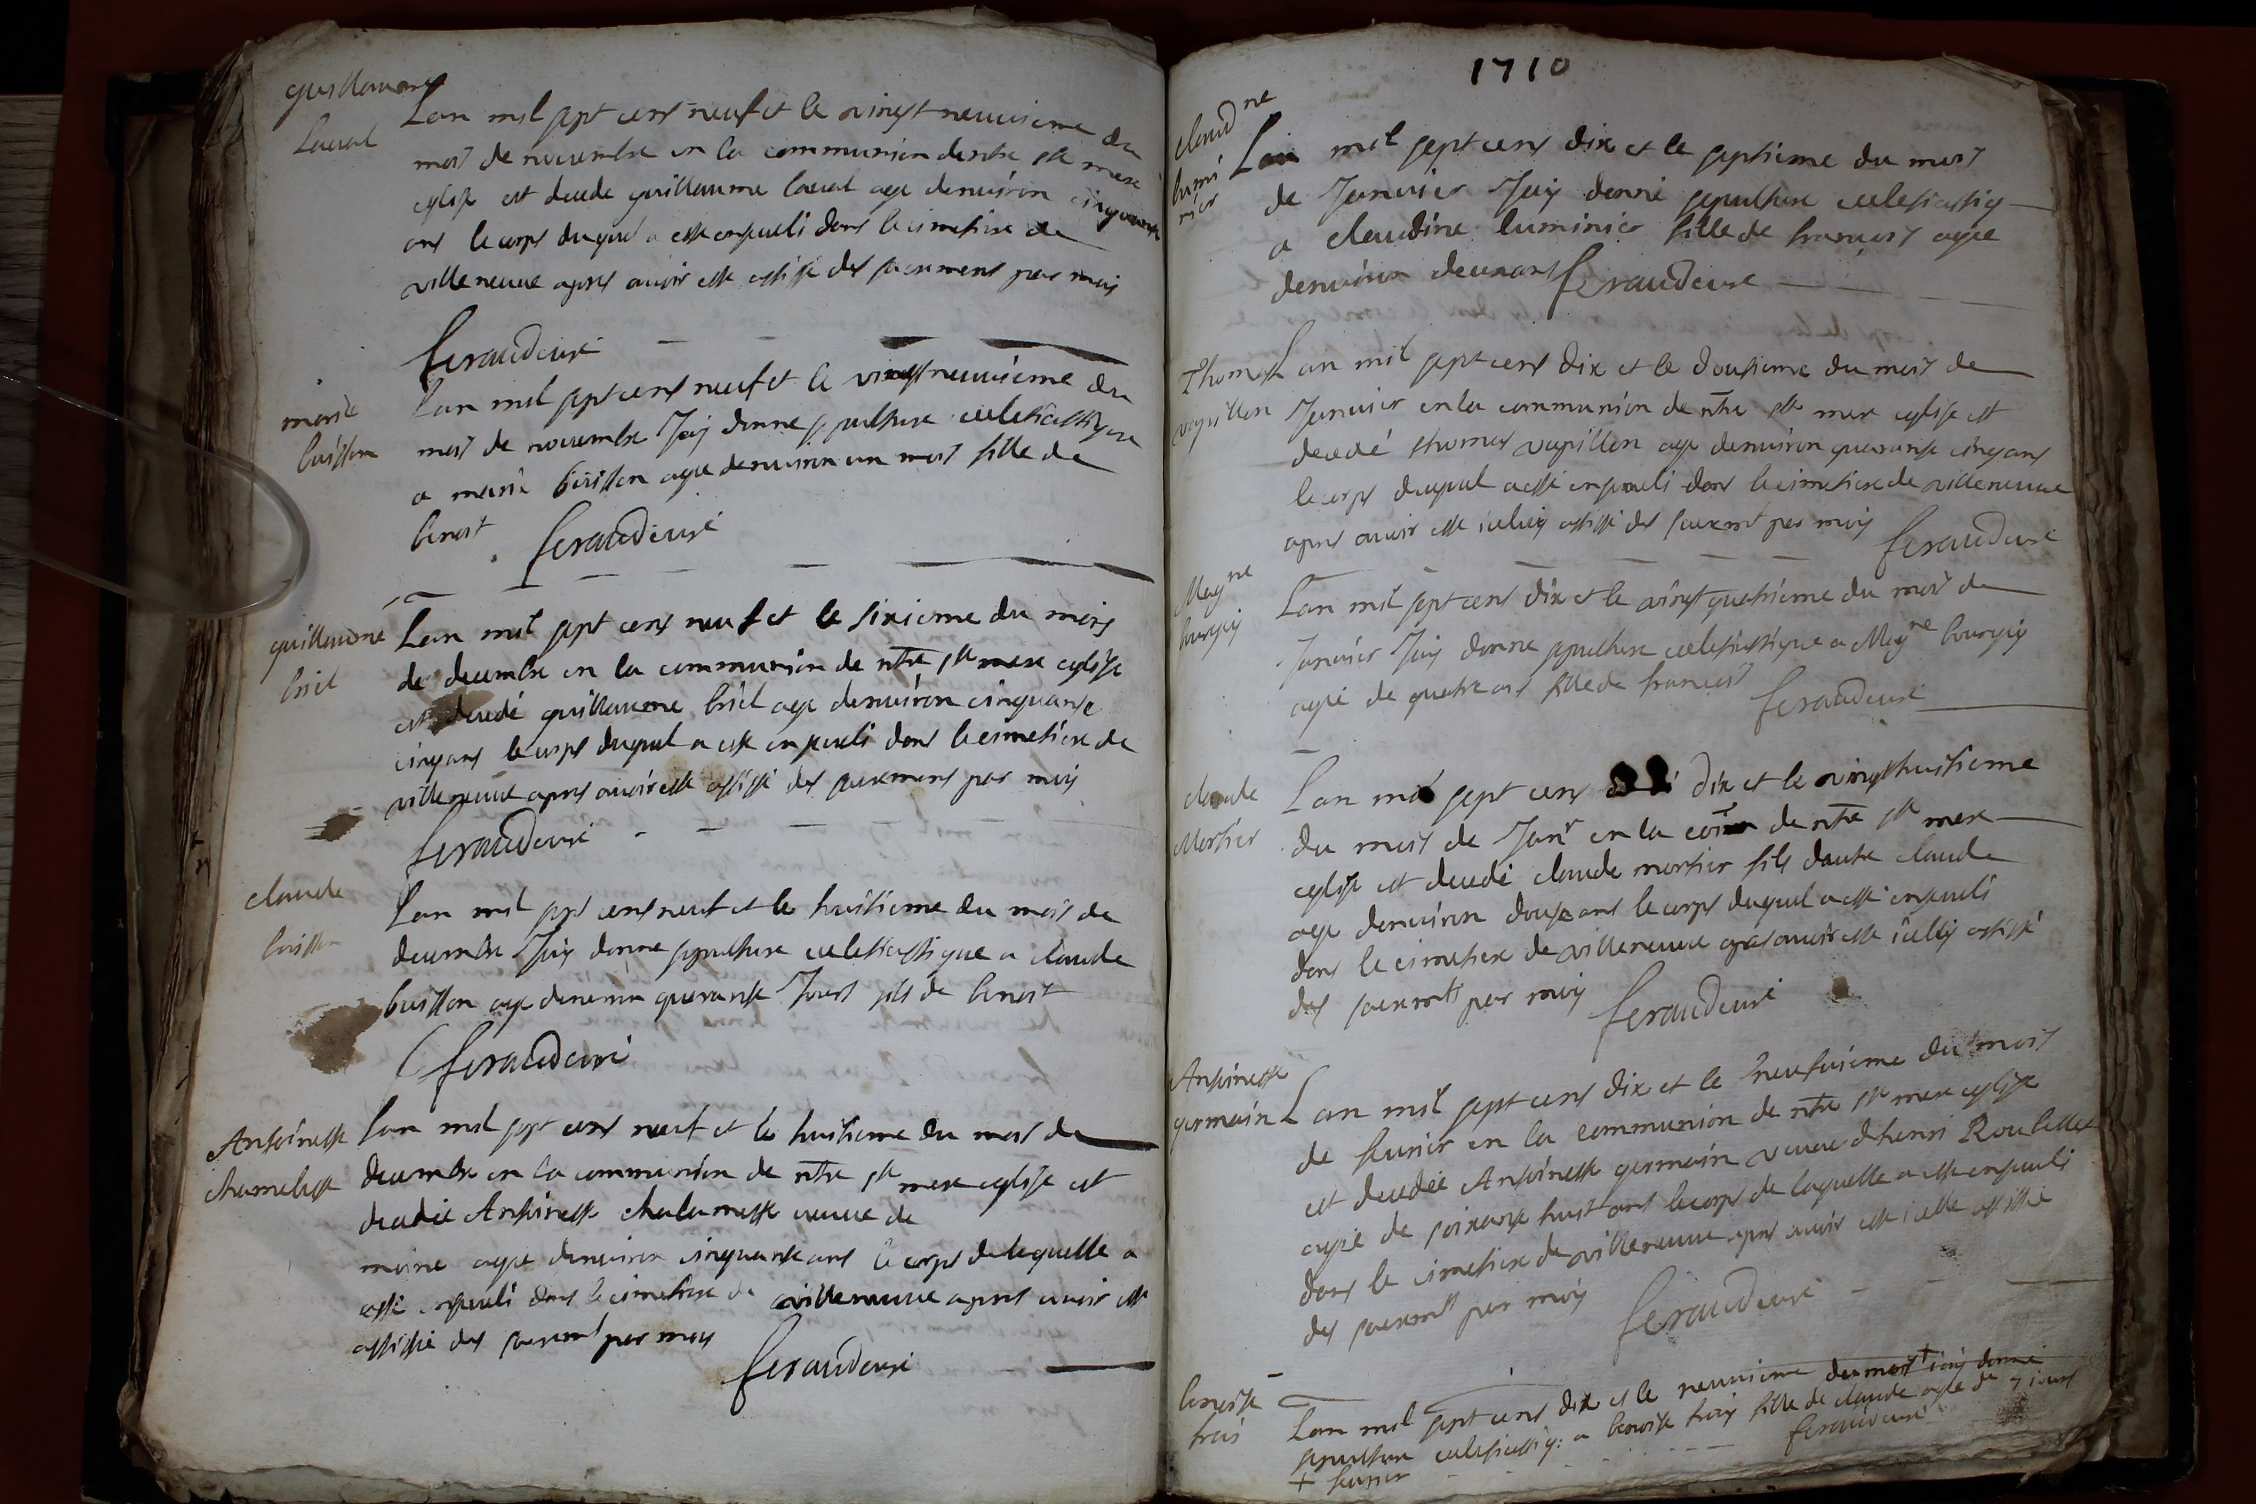 guillaume
Laval
Lan mil sept cens neuf et le vingt neuvieme du
mois de novembre en la communion de ntre ste mere
eglise est decede guillaume laval age denviron cinquante
ans le corps duquel a esté enseveli dans le cimetiere de
villeneuve apres avoir esté assisté des sacremens par moy
feraud curé
marie
buisson
Lan mil sept cens neuf et le vingt neuvieme du
mois de novembre Jay donne sepulture ecclesiastique
a marie buisson agee denviron un mois fille de
benoit feraud curé
guillaume
briel
Lan mil sept cens neuf et le sixieme du mois
de decembre en la communion de ntre ste mere eglise
est decedé guillaume briel age denviron cinquante
cinq ans le corps duquel a esté enseveli dans le cimetiere de
villeneuve apres avoir esté assisté des sacremens par moy
feraud curé
claude
buisson
Lan mil sept cens neuf et le huitieme du mois de
decembre Jay donne sepulture ecclesiastique a claude
buisson age denviron quarante Jours fils de benoit
feraud curé
Antoinette
chamelette
Lan mil sept cens neuf et le huitieme du mois de
decembre en la communion de ntre ste mere eglise est
decedée Antoinette chalamette veuve de
moine agee denviron cinquante ans le corps de laquelle a
esté enseveli dans le cimetiere de villeneuve apres avoir esté
assistée des sacremt par moy
feraud curé
1710
claudne
lumi
nier
Lan mil sept cens dix et le septieme du mois
de Janvier Jay donné sepulture ecclesiastiq
a claudine luminier fille de francois agee
denviron deux ans feraud curé
Thomas
vapillon
Lan mil sept cens dix et le dousieme du mois de
Janvier en la communion de ntre ste mere eglise est
decedé thomas vapillon age denviron quarante cinq ans
le corps duquel a esté enseveli dans le cimetiere de villeneuve
apres avoir esté iceluy assisté des sacremt par moy feraud curé
Magne
bourgey
Lan mil sept cens dix et le vingt quatrieme du mois de
Janvier Jay donne sepulture ecclesiastique a Magne bourgey
agée de quatre ans fille de francois feraud curé
claude
Mortier
Lan mil sept cens dix et le vingt huitieme
du mois de Janr en la com̃ de ntre ste mere
eglise est decedé claude mortier fils dautre claude
age denviron douse ans le corps duquel a esté enseveli
dans le cimetiere de villeneuve apres avoir esté icelluy assisté
des sacremts par moy feraud curé
Antoinette
germain
Lan mil sept cens dix et le neufvieme du mois
de fevrier en la communion de ntre ste mere eglise
est decedée Antoinette germain veuve dhenri Roulette
agée de soixante huit ans le corps de laquelle a esté enseveli
dans le cimetiere de villeneuve apres avoir esté icelle assistée
des sacremts par moy feraud curé
benoiste
frais
Lan mil sept cens dix et le neuvieme du mois + iay donné
sepulture ecclesiastiq: a benoiste fray fille de claude agée de 7 iours
+ fevrier feraud curé